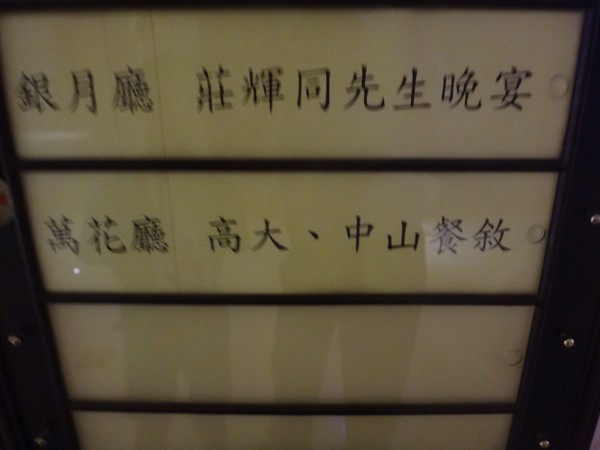 銀月廳 莊輝同先生晚宴
萬花廳 高大、中山餐敘